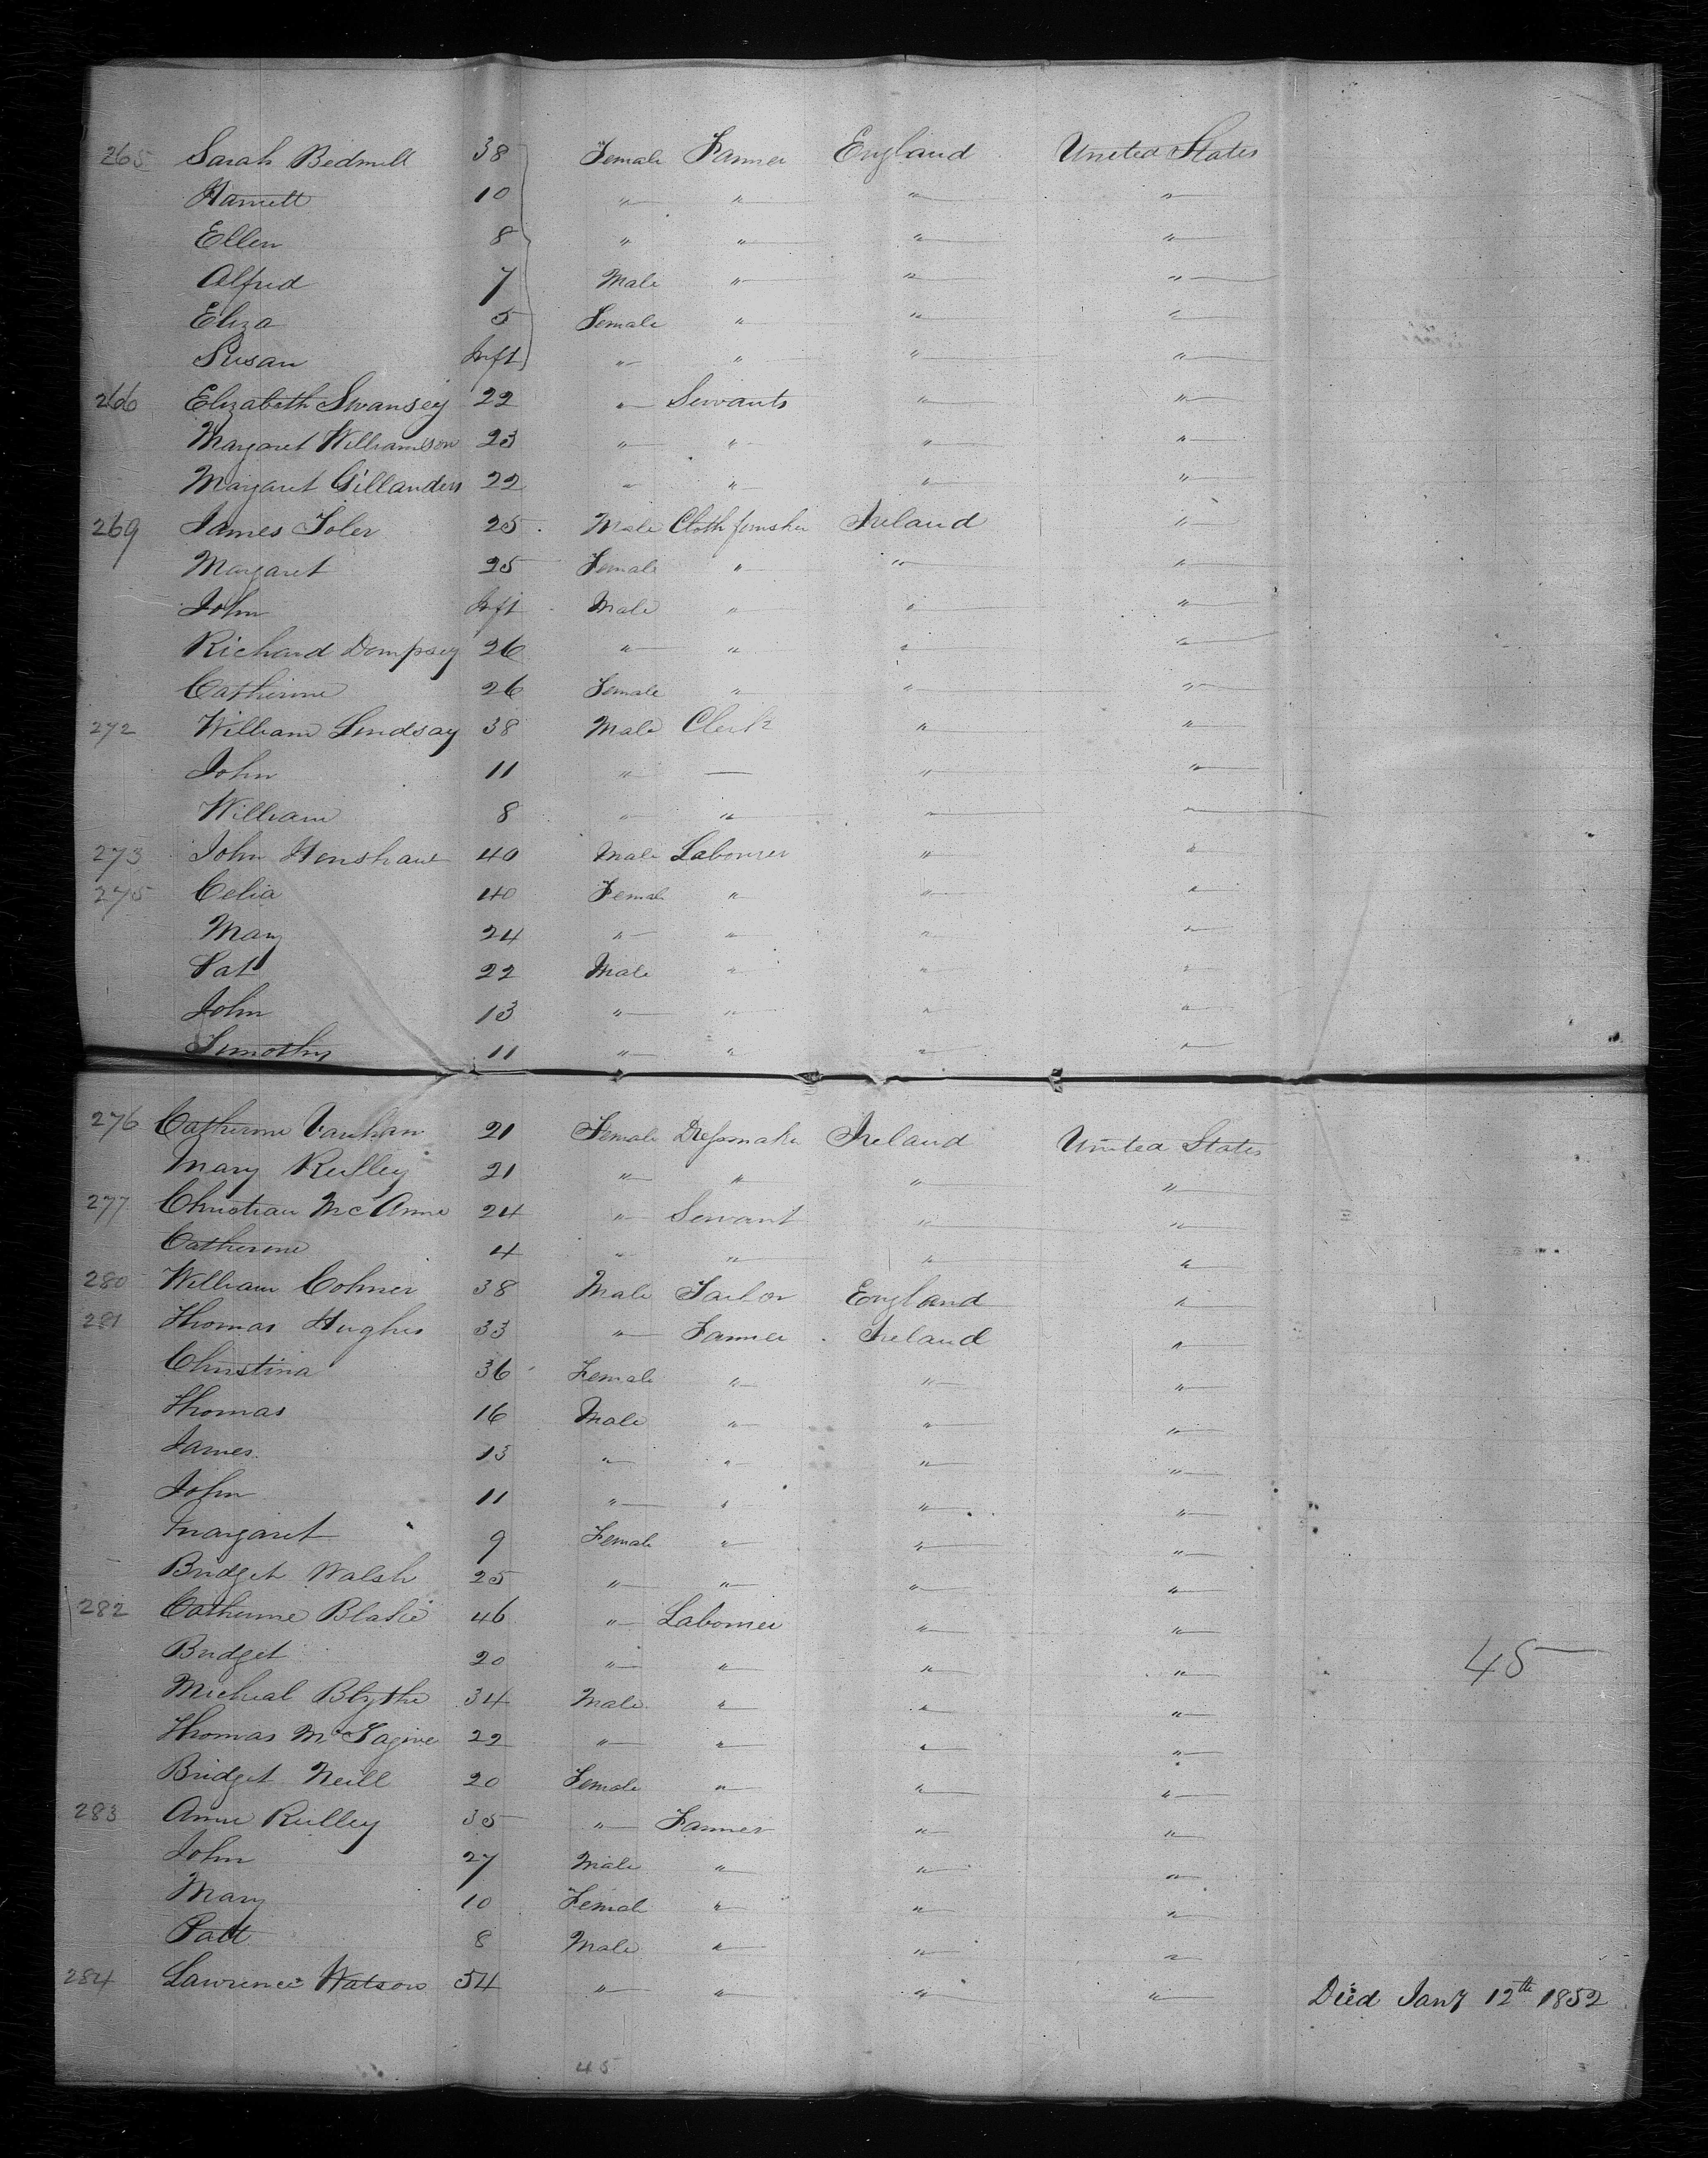 265 Sarah Bedmill 38 Female Farmer England United States
Harriett 10 " " " "
Ellen 8 " " " "
Alfred 7 Male " " "
Eliza 5 Female " " "
Susan Inft " " " "
266 Elizabeth Swansey 22 " Servants " "
Margaret Williamson 23 " " " "
Margaret Gillanders 22 " " " "
269 James Toler 25 Male Cloth finisher Ireland "
Margaret 25 Female " " "
John Inft Male " " "
Richard Dempsey 26 " " " "
Catherine 26 Female " " "
272 William Lindsay 38 Male Clerk " "
John 11 " — " "
William 8 " " " "
273 John Henshaw 40 Male Labourer " "
275 Celia 40 Female " " "
Mary 24 " " " "
Pat 22 Male " " "
John 13 " " " "
Timothy 11 " " " "
276 Catherine Vauhan 21 Female Dressmaker Ireland United States
Mary Reilley 21 " " " "
277 Christian McAnne 24 " Servant " "
Catherine 4 " " " "
280 William Cohner 38 Male Tailor England "
281 Thomas Hughes 33 " Farmer Ireland "
Christina 36 Female " " "
Thomas 16 Male " " "
James 13 " " " "
John 11 " " " "
Margaret 9 Female " " "
Bridget Walsh 25 " " " "
282 Catherine Blake 46 " Labourer " "
Bridget 20 " " " " 45
Micheal Blythe 34 Male " " "
Thomas McTagine 22 " " " "
Bridget Neill 20 Female " " "
283 Anne Reilley 35 " Farmer " "
John 27 Male " " "
Mary 10 Female " " "
Patt 8 Male " " "
284 Lawrence Watson 54 " " " " Died Jany 12th 1852
45